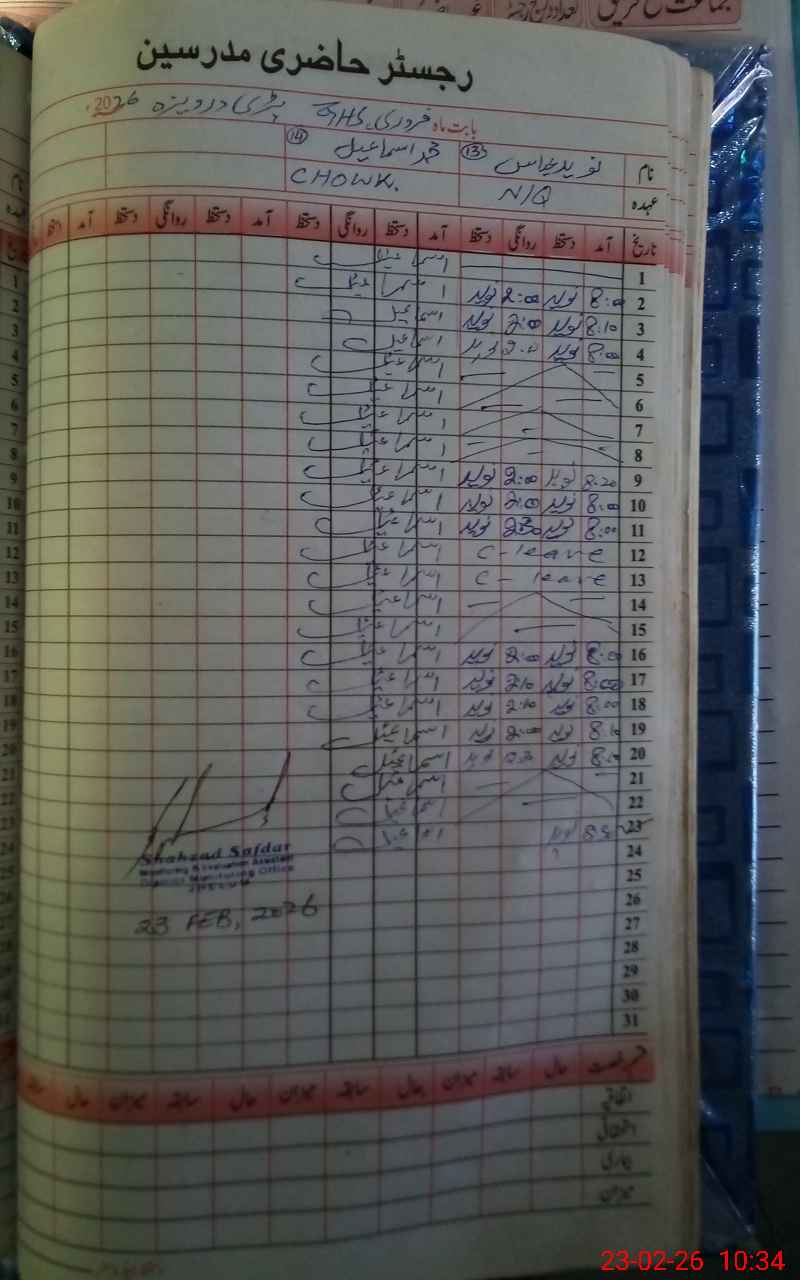 رجسٹر حاضری مدرسین
بابت ماہ فروری GHS 2026
نام نوید عباس (13) محمد اسماعیل (14)
عہدہ N/Q CHOWK.
تاریخ آمد دستخط روانگی دستخط آمد دستخط روانگی دستخط آمد دستخط روانگی دستخط آمد دستخط
1 اسماعیل
2 8:00 نوید 2:00 نوید اسماعیل
3 8:10 نوید 2:00 نوید اسماعیل
4 8:00 نوید 2:00 نوید اسماعیل
5 اسماعیل
6 اسماعیل
7 اسماعیل
8 اسماعیل
9 8:20 نوید 2:00 نوید اسماعیل
10 8:00 نوید 2:00 نوید اسماعیل
11 8:00 نوید نوید اسماعیل
12 C-leave اسماعیل
13 C-leave اسماعیل
14 اسماعیل
15 اسماعیل
16 8:00 نوید 2:00 نوید اسماعیل
17 8:00 نوید 2:10 نوید اسماعیل
18 8:00 نوید 2:10 نوید اسماعیل
19 8:10 نوید 2:00 نوید اسماعیل
20 نوید نوید اسماعیل
21 اسماعیل
22 اسماعیل
23 نوید اسماعیل
24
25
26
27
28
29
30
31
Shahzad Safdar
Monitoring & Evaluation Assistant
District Monitoring Office
JHELUM
23 FEB, 2026
قسم رخصت حال سابقہ میزان حال سابقہ میزان حال سابقہ میزان حال سابقہ
اتفاقیہ
استحقاقی
بیماری
میزان
23-02-26 10:34